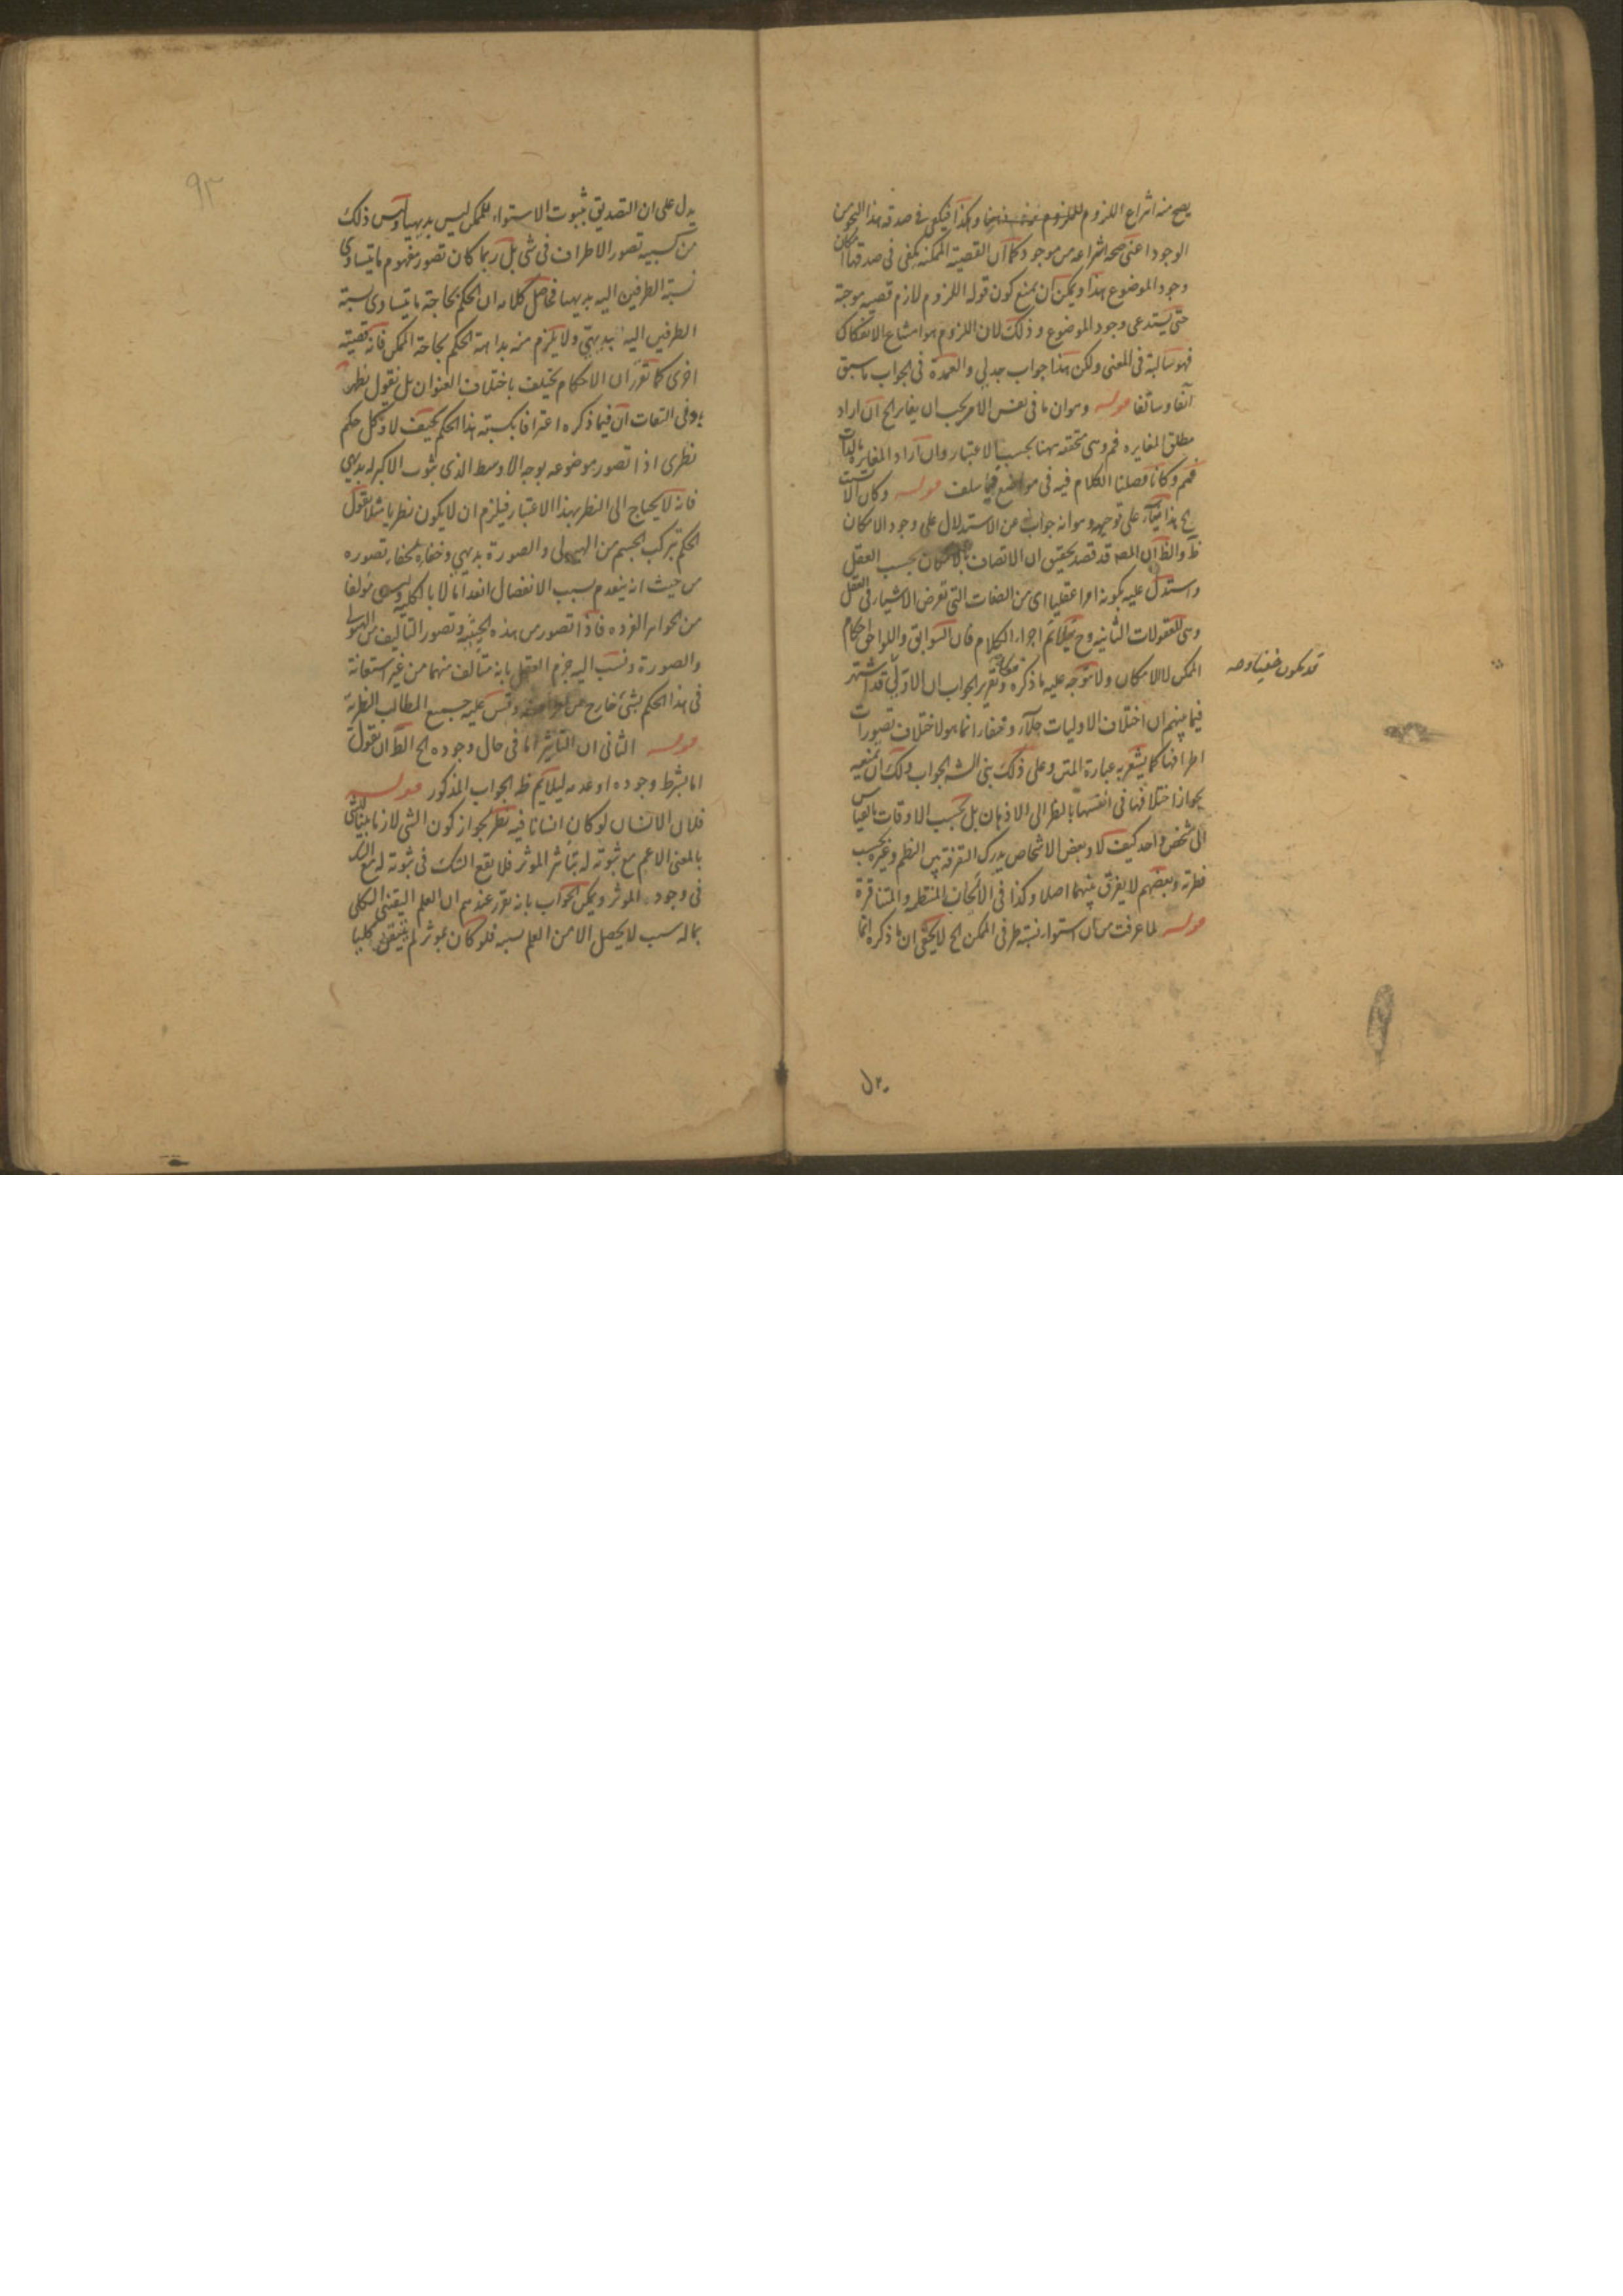 يصح منه انتزاع اللزوم للملزوم وهكذا فيكفى فى صدقه هذا النحو من
الوجود اعنى صحة انتزاعه من موجود كما ان القضية الممكنة يكفى فى صدقها امكان
وجود الموضوع هذا ويمكن ان يمنع كون قوله اللزوم لازم قضيه موجبة
حتى يستدعى وجود الموضوع وذلك لان اللزوم هو امتناع الانفكاك
فهو سالبة فى المعنى ولكن هذا جواب جدلي والعمدة فى الجواب ما سبق
آنفا وسالفا قوله وهو ان ما فى نفس الامر يجب ان يغاير الخ ان اراد
مطلق المغايره فم وهى متحققه ههنا بحسب الاعتبار وان اراد المغايرة بالذات
فمم وكنا فصلنا الكلام فيه فى مواضع فيما سلف قوله وكان الانسب
الخ هذا بناء على توجيهه وهو انه جواب عن الاستدلال على وجود الامكان
ظ والظ ان المص قد قصد تحقيق ان الاتصاف بالامكان بحسب العقل
واستدل عليه بكونه امرا عقليا اى من الصفات التى تعرض الاشياء فى العقل
وهى المعقولات الثانيه وح يتلائم اجزاء الكلام فان السوابق واللواحق احكام
الممكن لا الامكان ولا يتوجه عليه ما ذكره وتقرير الجواب ان الاولى قد اشتهر
قد يكون خفيا
فيما بينهم ان اختلاف الاوليات جلاء وخفاء انما هو لاختلاف تصورات
اطرافها كما يشعر به عبارة المتن وعلى ذلك بنى الش الجواب ولك ان تمنعه
بجواز اختلافها فى انفسها بالنظر الى الاذهان بل بحسب الاوقات بالقياس
الى شخص واحد كيف لا وبعض الاشخاص يدرك التفرقة بين النظم وغيره بحسب
فطرته وبعضهم لا يفرق بينهما اصلا وكذا فى الالحان المنتظمه والمتنافرة
قوله لما عرفت من ان استواء نسبة طرفى الممكن الخ لا يخفى ان ما ذكره انما
٩٣
يدل على ان التصديق بثبوت الاستواء للممكن ليس بديهيا وليس ذلك
من كسبيه تصور الاطراف فى شى بل ربما كان تصور مفهوم ما يتساوى
نسبة الطرفين اليه بديهيا فحاصل كلامه ان الحكم بحاجة ما يتساوى نسبة
الطرفين اليه بديهى ولا يلزم منه بداهة الحكم بحاجة الممكن فانه قضية
اخرى كما تقرر ان الاحكام يختلف باختلاف العنوان بل نقول يظهر
بادنى التفات ان فيما ذكره اعترافا بكسبيته هذا الحكم كيف لا وكل حكم
نظرى اذا تصور موضوعه بوجه الاوسط الذى ثبوت الاكبر له بديهى
فانه لا يحتاج الى النظر بهذا الاعتبار فيلزم ان لا يكون نظريا مثلا نقول
الحكم بتركب الجسم من الهيولى والصورة بديهي وخفاؤه لخفاء تصوره
من حيث انه ينعدم بسبب الانفصال انعداما لا بالكليه وليس مؤلفا
من الجواهر الفرده فاذا تصور من هذه الحيثيه وتصور التأليف من الهيولى
والصورة ونسب اليه جزم العقل بانه متألف منهما من غير استعانة
فى هذا الحكم بشئ خارج عن وقس عليه جميع المطالب النظرية
قوله الثانى ان التأثير اما فى حال وجوده الخ الظ ان نقول
اما بشرط وجوده او عدمه ليلايم ظ الجواب المذكور قوله
فلان الانسان لو كان انسانا فيه نظر لجواز كون الشى لازما بينا لشى
بالمعنى الاعم مع ثبوته له بتأثير المؤثر فلا يقع الشك فى ثبوته له مع الشك
فى وجود المؤثر ويمكن الجواب بانه تقرر عندهم ان العلم اليقينى الكلى
بما له سبب لا يحصل الا من العلم بسببه فلو كان بمؤثر لم يتيقن كليا